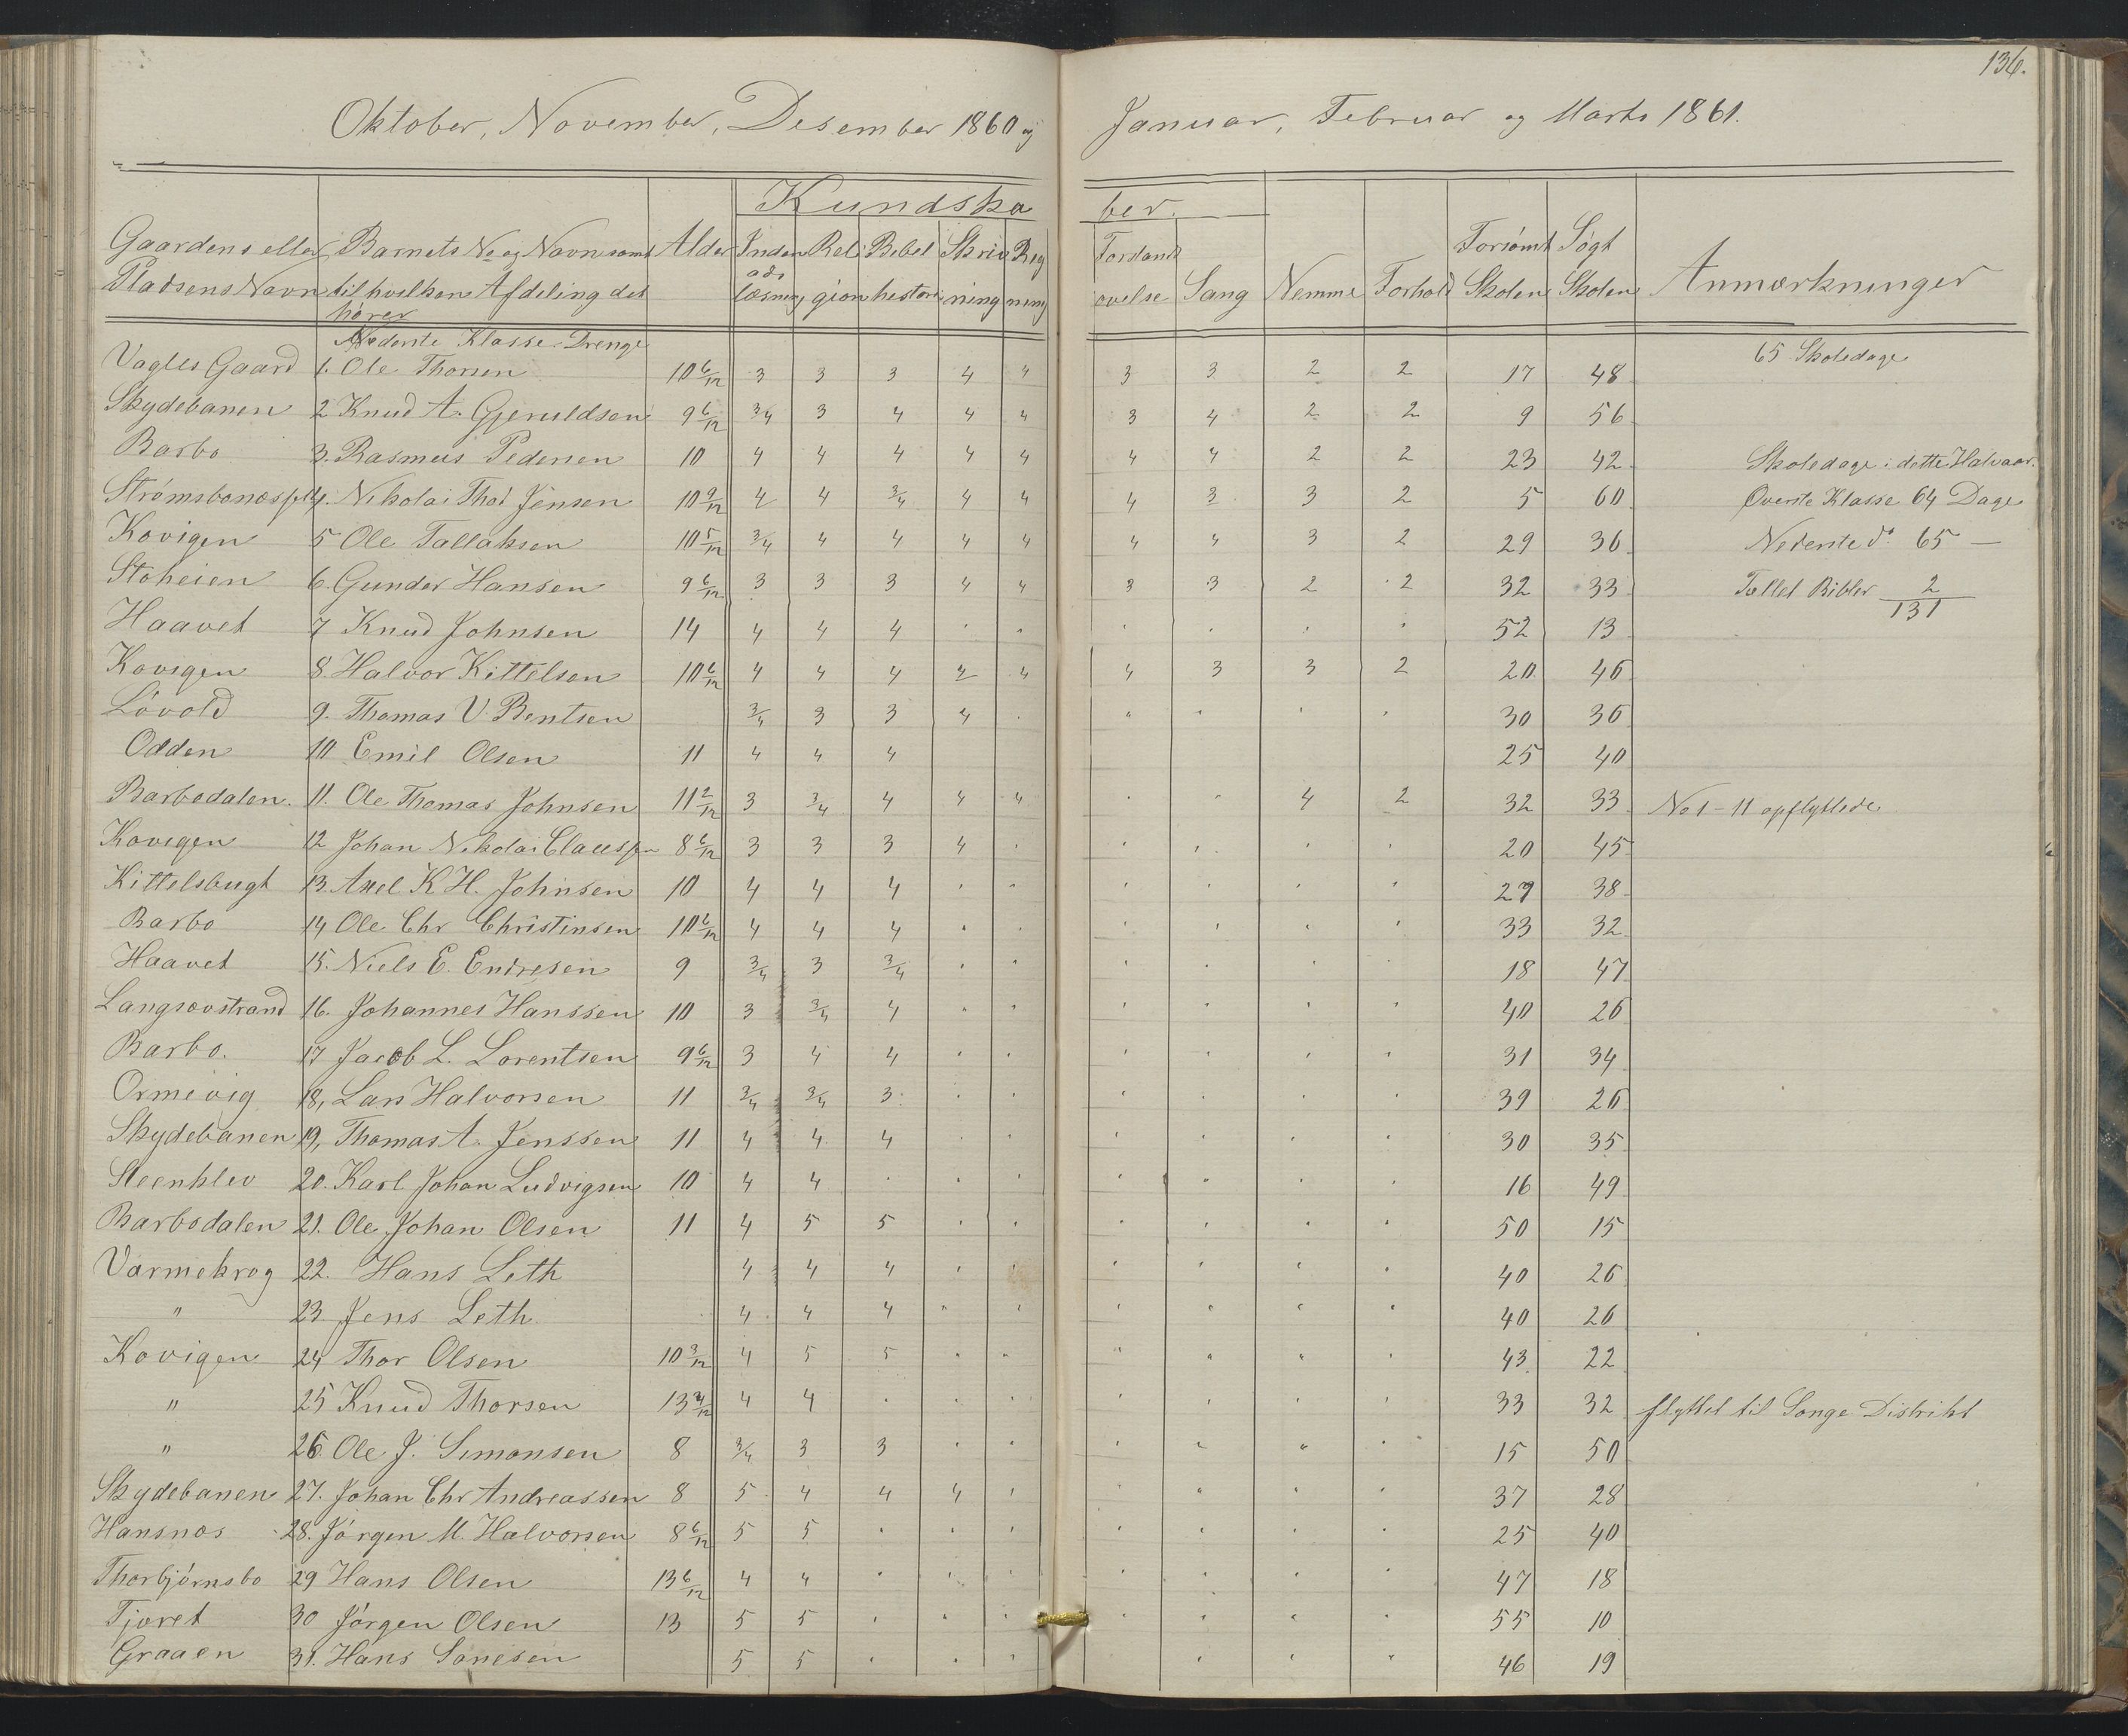 136.
Oktober, November, Desember 1860 og Januar, Februar og Marts 1861.
Kundska ber.
Gaardens eller Pladsens Navn | Barnets No og Navn samt til hvilken Afdeling det hører | Alder | Inden ads læsning | Reli gion | Bibel histori | Skriv ning | Reg ning | Forstands øvelse | Sang | Nemme | Forhold | Forsømt Skolen | Søgt Skolen | Anmærkninger
Nederste Klasse. Drenge
65 Skoledage
Vagtes Gaard 1. Ole Thorsen 10 6/12 3 3 3 4 4 3 3 2 2 17 48
Skydebanen 2 Knud A. Gjeruldsen 9 6/12 3/4 3 4 4 4 3 4 2 2 9 56
Barbo 3. Rasmus Pedersen 10 4 4 4 4 4 4 4 2 2 23 42 Skoledage i dette Halvaar.
4. Nikolai Thod Jensen 10 9/12 4 4 3/4 4 4 4 3 3 2 5 60 Øverste Klasse 64 Dage
Kovigen 5 Ole Tallaksen 10 5/12 3/4 4 4 4 4 4 4 3 2 29 36 Nederste do 65 —
Stoheien 6. Gunder Hansen 9 6/12 3 3 3 4 4 3 3 2 2 32 33 Tellet Bibler 2
131
Haavet 7 Knud Johnsen 14 4 4 4 " " " " " " 52 13
Kovigen 8. Halvor Kittelsen 10 6/12 4 4 4 4 4 4 3 3 2 20 46
Løvold 9. Thomas V. Bentsen 3/4 3 3 4 " " " " " 30 36
Odden 10 Emil Olsen 11 4 4 4 25 40
Barbodalen. 11. Ole Thomas Johnsen 11 2/12 3 3/4 4 4 4 " " 4 2 32 33 No 1 - 11 opflyttede
Kovigen 12 Johan Nikolai Claussen 8 6/12 3 3 3 4 " " " " " 20 45
Kittelsbugt 13. Axel K H. Johnsen 10 4 4 4 " " " " " " 27 38
Barbo 14 Ole Chr Christinsen 10 6/12 4 4 4 " " " " " " 33 32
Haavet 15. Niels E. Endresen 9 3/4 3 3/4 " " " " " " 18 47
Langsævstrand 16. Johannes Hanssen 10 3 3/4 4 " " " " " " 40 26
Barbo. 17 Jacob L. Lorentsen 9 6/12 3 4 4 " " " " " " 31 34
Ormevig 18, Lars Halvorsen 11 3/4 3/4 3 " " " " " " 39 26
Skydebanen 19, Thomas A. Jenssen 11 4 4 4 " " " " " " 30 35
Steenklev 20. Karl Johan Ludvigsen 10 4 4 " " " " " " " 16 49
Barbodalen 21. Ole Johan Olsen 11 4 5 5 " " " " " " 50 15
Varmekrog 22. Hans Leth 4 4 4 " " " " " " 40 26
" 23. Jens Leth 4 4 4 " " " " " " 40 26
Kovigen 24 Thor Olsen 10 3/12 4 5 5 " " " " " " 43 22
" 25 Knud Thorsen 13 4 4 " " " " " " " 33 32 flyttet til Songe Distrikt
" 26 Ole J. Simonsen 8 3/4 3 3 " " " " " " 15 50
Skydebanen 27. Johan Chr Andreassen 8 5 4 4 4 " " " " " 37 28
Hansnæs 28. Jørgen M. Halvorsen 8 6/12 5 5 " " " " " " " 25 40
Thorbjørnsbo 29 Hans Olsen 13 6/12 4 4 " " " " " " " 47 18
30 Jørgen Olsen 13 5 5 " " " " " " " 55 10
Graaen 31. Hans 5 5 " " " " " " 46 19